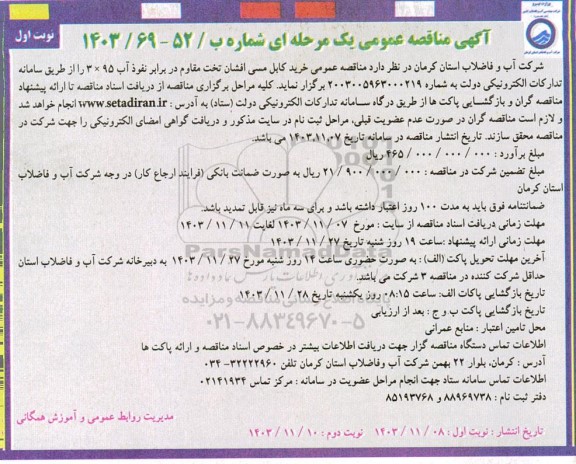 نوبت اول
آگهی مناقصه عمومی یک مرحله ای شماره ب / ۵۲ - ۶۹ / ۱۴۰۳
شرکت آب و فاضلاب استان کرمان در نظر دارد مناقصه عمومی خرید کابل مسی افشان تخت مقاوم در برابر نفوذ آب ۹۵ × ۳ را از طریق سامانه
تدارکات الکترونیکی دولت به شماره ۲۰۰۳۰۰۵۹۶۳۰۰۰۲۱۹ برگزار نماید. کلیه مراحل برگزاری مناقصه از دریافت اسناد مناقصه تا ارائه پیشنهاد
مناقصه گران و بازگشایی پاکت ها از طریق درگاه سامانه تدارکات الکترونیکی دولت (ستاد) به آدرس : www.setadiran.ir انجام خواهد شد
و لازم است مناقصه گران در صورت عدم عضویت قبلی، مراحل ثبت نام در سایت مذکور و دریافت گواهی امضای الکترونیکی را جهت شرکت در
مناقصه محقق سازند. تاریخ انتشار مناقصه در سامانه تاریخ ۱۴۰۳.۱۱.۰۷ می باشد.
مبلغ برآورد : ۰۰۰ / ۰۰۰ / ۰۰۰ / ۴۶۵ ریال
مبلغ تضمین شرکت در مناقصه : ۰۰۰ / ۰۰۰ / ۹۰۰ / ۲۱ ریال به صورت ضمانت بانکی (فرایند ارجاع کار) در وجه شرکت آب و فاضلاب
استان کرمان
ضمانتنامه فوق باید به مدت ۱۰۰ روز اعتبار داشته باشد و برای سه ماه نیز قابل تمدید باشد.
مهلت زمانی دریافت اسناد مناقصه از سایت : مورخ ۰۷ / ۱۱ / ۱۴۰۳ لغایت ۱۱ / ۱۱ / ۱۴۰۳
مهلت زمانی ارائه پیشنهاد :ساعت ۱۹ روز شنبه تاریخ ۲۷ / ۱۱ / ۱۴۰۳
آخرین مهلت تحویل پاکت (الف) : به صورت حضوری ساعت ۱۴ روز شنبه مورخ ۲۷ / ۱۱ / ۱۴۰۳ به دبیرخانه شرکت آب و فاضلاب استان
حداقل شرکت کننده در مناقصه ۳ شرکت می باشد.
تاریخ بازگشایی پاکات الف: ساعت ۰۸:۱۵ روز یکشنبه تاریخ ۲۸ / ۱۱ / ۱۴۰۳
تاریخ بازگشایی پاکت ب و ج : بعد از ارزیابی
محل تامین اعتبار : منابع عمرانی
اطلاعات تماس دستگاه مناقصه گزار جهت دریافت اطلاعات بیشتر در خصوص اسناد مناقصه و ارائه پاکت ها
آدرس : کرمان، بلوار ۲۲ بهمن شرکت آب وفاضلاب استان کرمان تلفن ۳۲۲۲۲۹۶۰- ۰۳۴
اطلاعات تماس سامانه ستاد جهت انجام مراحل عضویت در سامانه : مرکز تماس ۰۲۱۴۱۹۳۴
دفتر ثبت نام : ۸۸۹۶۹۷۳۸ و ۸۵۱۹۳۷۶۸
مدیریت روابط عمومی و آموزش همگانی
تاریخ انتشار : نوبت اول : ۰۸ / ۱۱ / ۱۴۰۳ نوبت دوم : ۱۰ / ۱۱ / ۱۴۰۳
ParsNamadData
۰۲۱-۸۸۳۴۹۶۷۰-۵